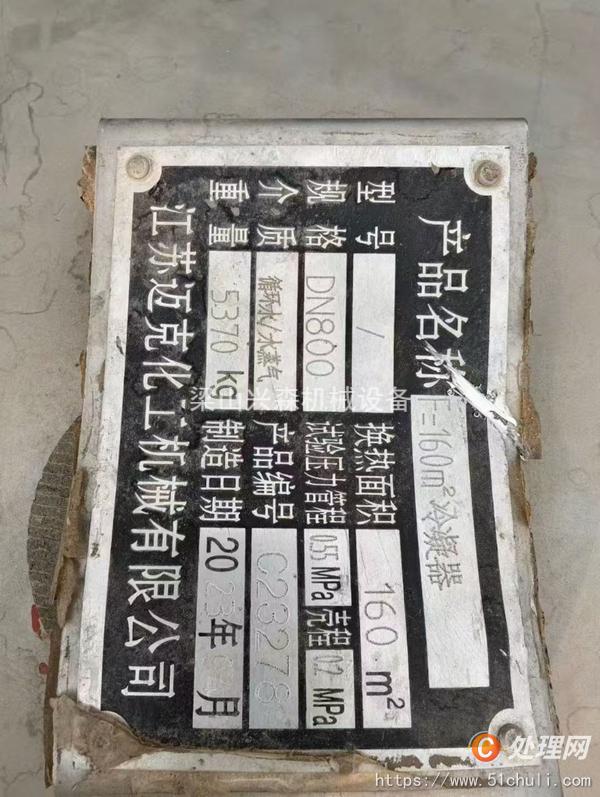 产品名称 F=160m²冷凝器
型号 / 换热面积 160 m²
规格 DN800 试验压力管程 0.55 MPa 壳程 0.2 MPa
介质 循环水/水蒸气 产品编号 C23278
重量 5370 kg 制造日期 2023年 月
江苏迈克化工机械有限公司
梁山兴森机械设备
C 处理网
https://www.51chuli.com